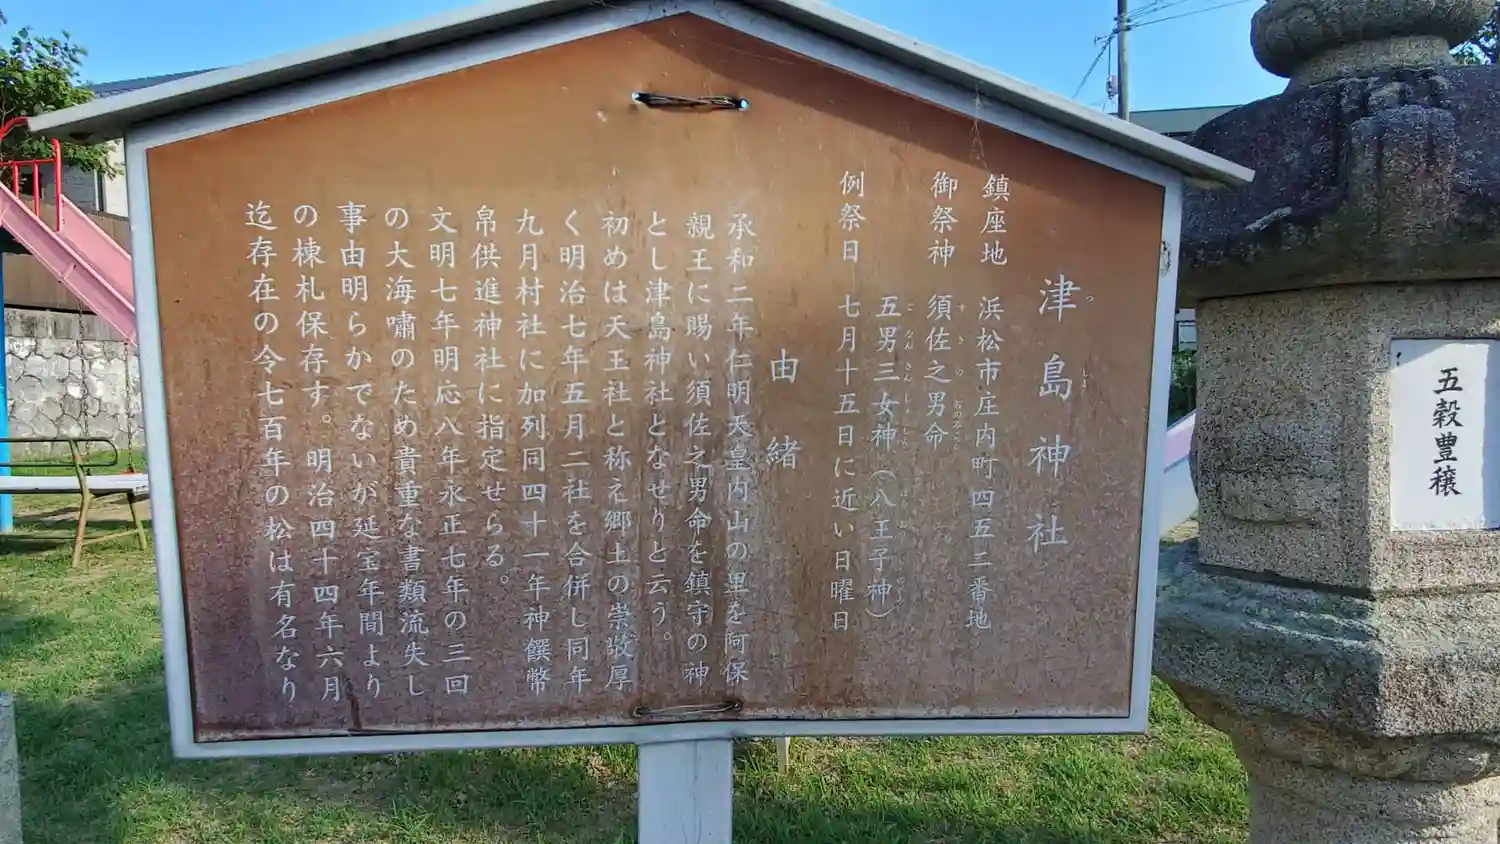 津島神社
鎮座地 浜松市庄内町四五三番地
御祭神 須佐之男命
五男三女神(八王子神)
例祭日 七月十五日に近い日曜日
由緒
承和二年仁明天皇内山の里を阿保
親王に賜い須佐之男命を鎮守の神
とし津島神社となせりと云う。
初めは天王社と称え郷土の崇敬厚
く明治七年五月二社を合併し同年
九月村社に加列同四十一年神饌幣
帛供進神社に指定せらる。
文明七年明応八年永正七年の三回
の大海嘯のため貴重な書類流失し
事由明らかでないが延宝年間より
の棟札保存す。明治四十四年六月
迄存在の令七百年の松は有名なり
五穀豊穣